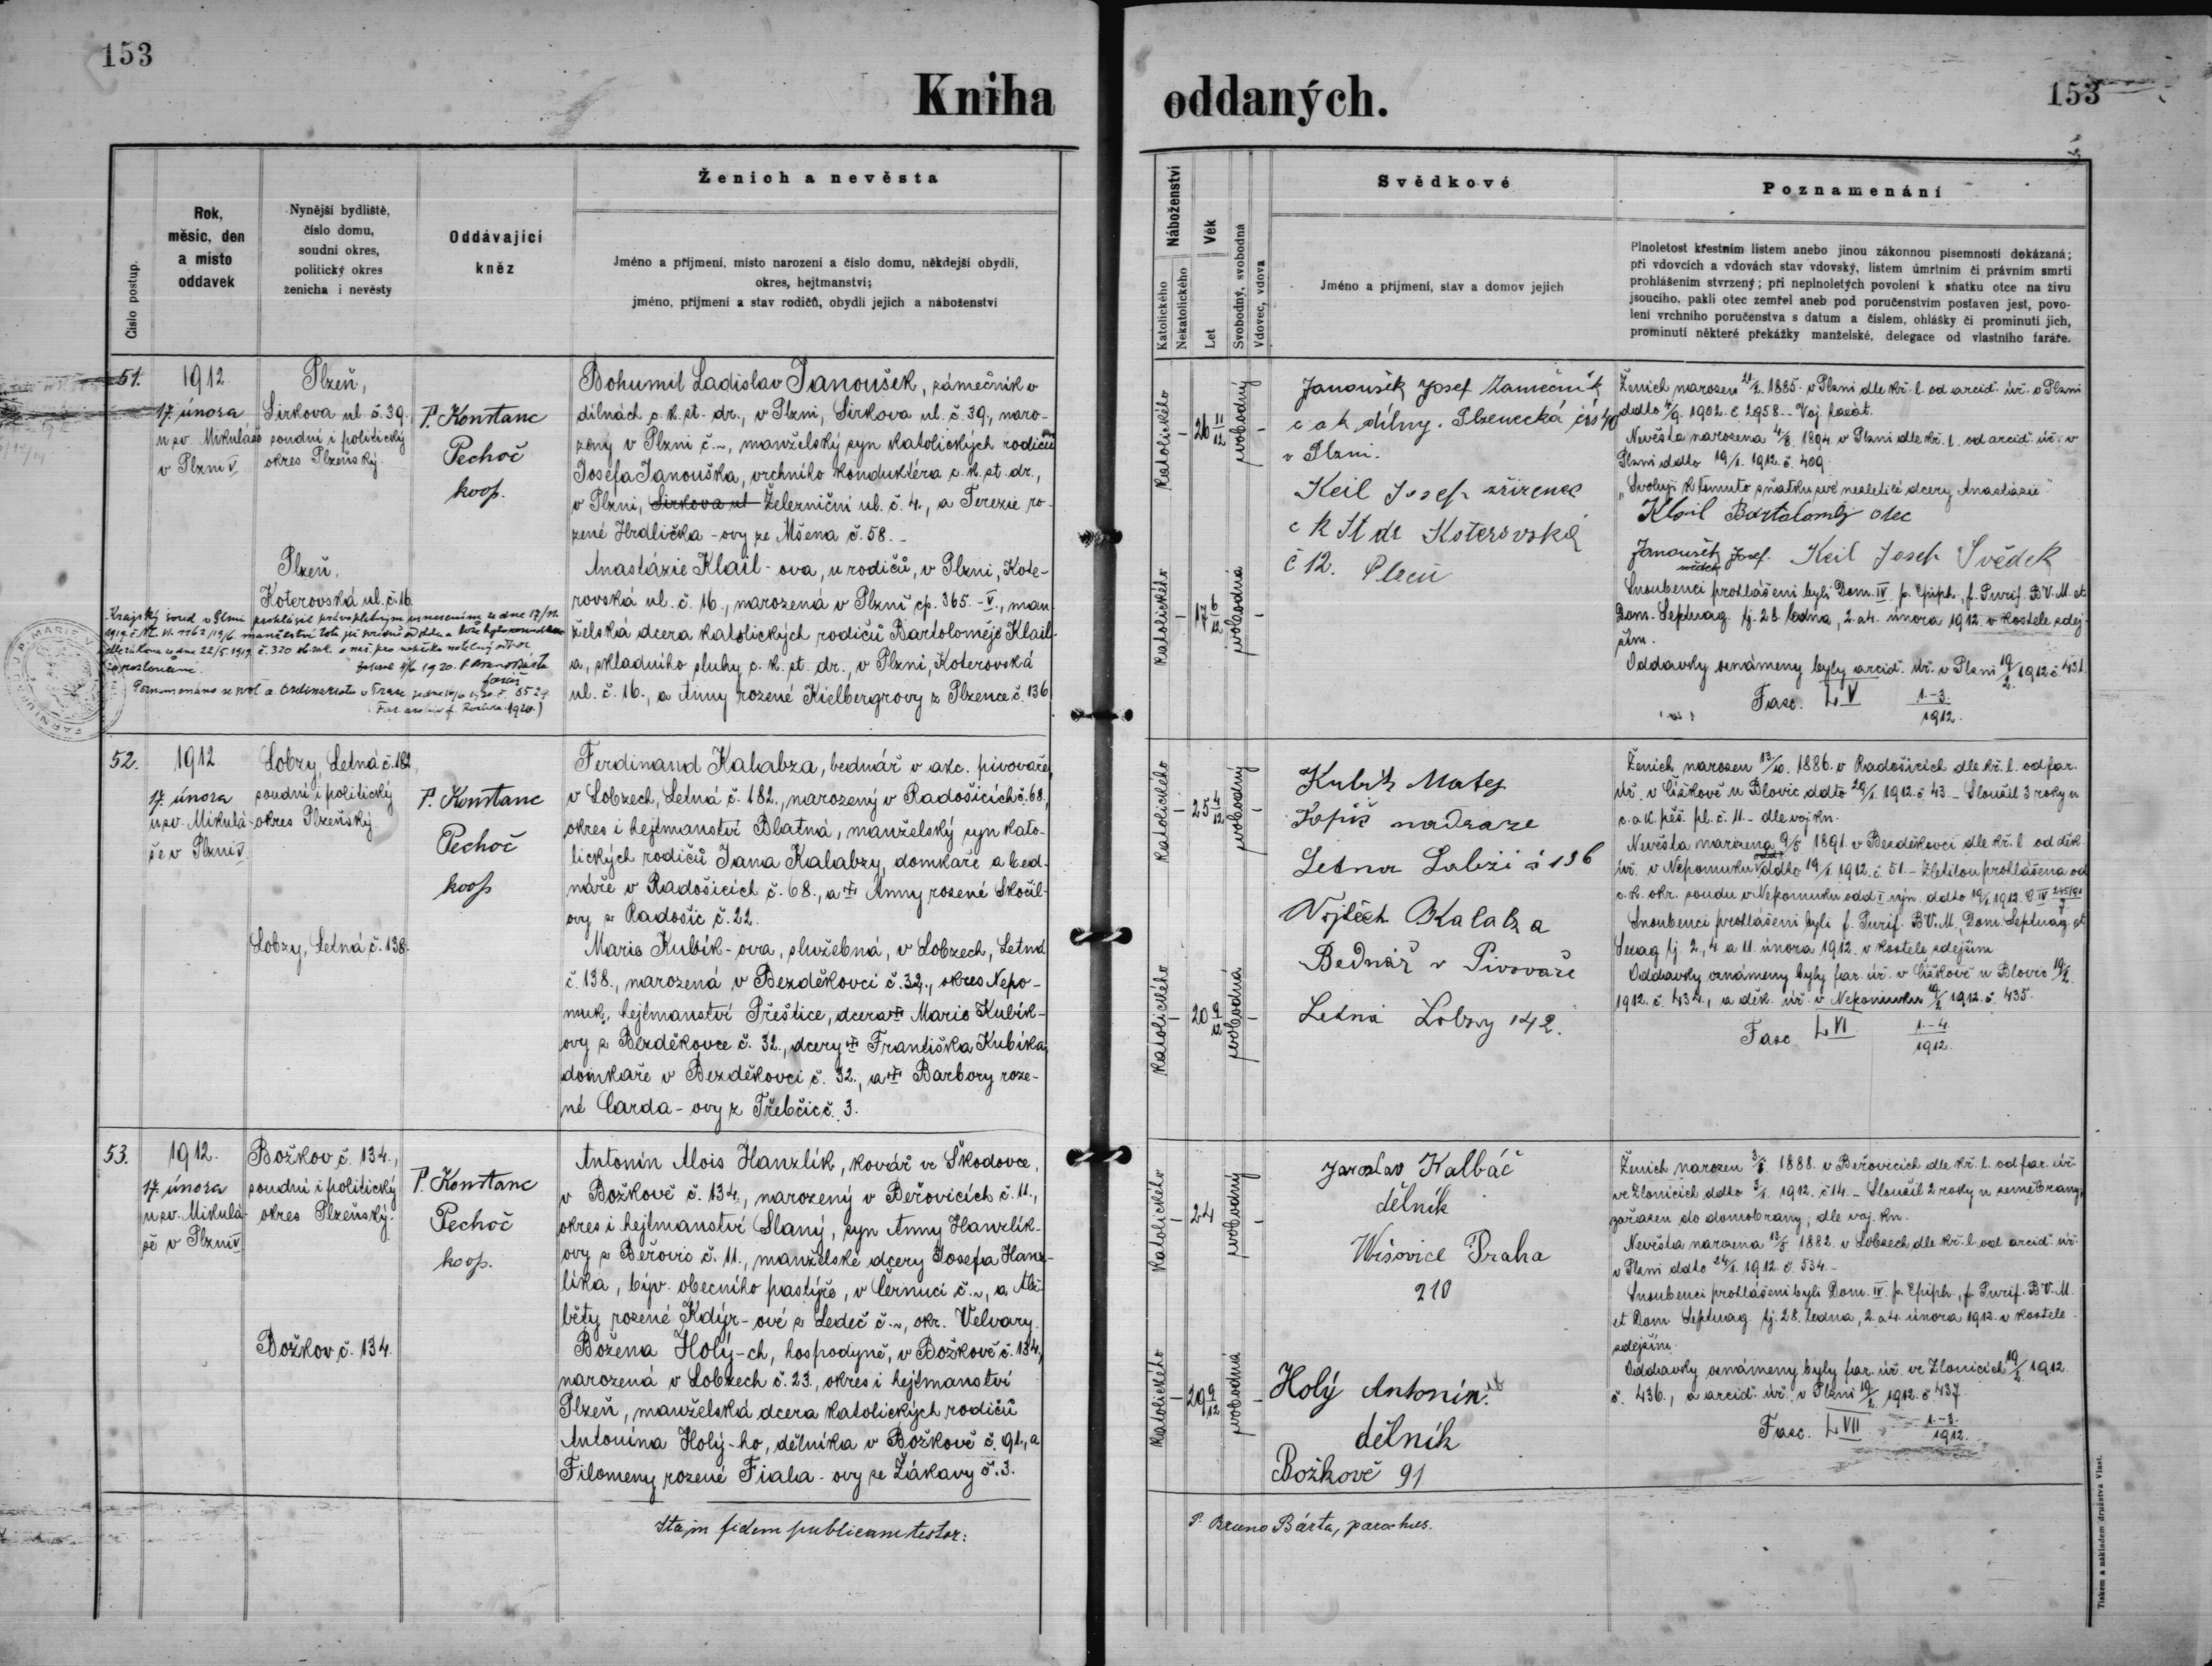 153
Kniha
oddaných.
153
Číslo postup.
Rok,
měsíc, den
a místo
oddavek
Nynější bydliště,
číslo domu,
soudní okres,
politický okres
ženicha i nevěsty
Oddávající
kněz
Ženich a nevěsta
Jméno a příjmení, místo narození a číslo domu, někdejší obydlí,
okres, hejtmanství;
jméno, příjmení a stav rodičů, obydlí jejich a náboženství
Náboženství
Katolického
Nekatolického
Věk
Let
Svobodný, svobodná
Vdovec, vdova
Svědkové
Jméno a příjmení, stav a domov jejich
Poznamenání
Plnoletost křestním listem anebo jinou zákonnou písemností dokázaná;
při vdovcích a vdovách stav vdovský, listem úmrtním či právním smrti
prohlášením stvrzený; při neplnoletých povolení k sňatku otce na živu
jsoucího, pakli otec zemřel aneb pod poručenstvím postaven jest, povo-
lení vrchního poručenstva s datum a číslem, ohlášky či prominutí jich,
prominutí některé překážky manželské, delegace od vlastního faráře.
51.
1912
17. února
u sv. Mikuláše
v Plzni V.
Plzeň,
Sirkova ul. č. 39.
soudní i politický
okres Plzeňský.
P. Konstanc
Pechoč
koop.
Bohumil Ladislav Janoušek, zámečník v
dílnách c. k. st. dr., v Plzni, Sirkova ul. č. 39., naro-
zený v Plzni č. ~, manželský syn katolických rodičů
Josefa Janouška, vrchního konduktéra c. k. st. dr.,
v Plzni, Sirkova ul Železniční ul. č. 4., a Terezie ro-
zené Hrdlička-ovy ze Mšena č. 58. -
Plzeň.
Koterovská ul. č. 16.
Anastázie Klail-ova, u rodičů, v Plzni, Kote-
rovská ul. č. 16., narozená v Plzni čp. 365.-V., man-
želská dcera katolických rodičů Bartoloměje Klail-
a, skladního sluhy c. k. st. dr., v Plzni, Koterovská
ul. č. 16., a Anny rozené Kielbergrovy z Plzence č. 136
Krajský soud v Plzni prohlásil právoplatným usnesením ze dne
dle zákona ze dne 22/5. 1919 č. 320
P. Bruno Bárta
farář
katolického
26 11/12
svobodný
katolického
17 6/12
svobodná
Janoušek Josef Zámečník
c a k dílny. Plzenecká čís 40
v Plzni.
Keil Josef zřízenec
c k St dr Koterovská
č 12. Plzeň
Ženich narozen 21/2. 1885. v Plzni dle kř. l. od arcid. úř. v Plzni
ddto 4/9. 1902. č 2958. - Voj. pasát.
Nevěsta narozena 4/8. 1894. v Plzni dle kř. l. od arcid. úř. v
Plzni ddto 19/1. 1912. č. 409.
"Svoluji k tomuto sňatku své nezletilé dcery Anastázie"
Klail Bartoloměj otec
Janoušek Josef. Keil Josef Svědek
svědek
Snoubenci prohlášeni byli Dom. IV. p. Epiph., f. Purif. B.V.M. et
Dom. Septuag. tj. 28. ledna, 2. a 4. února 1912. v kostele zdej-
ším.
Oddavky oznámeny byly arcid. úř. v Plzni 19/2. 1912 č. 431.
Fasc. L. V 1.-3. 1912.
52.
1912
17. února
u sv. Mikulá-
še v Plzni V.
Lobzy, Letná č. 182,
soudní i politický
okres Plzeňský.
P. Konstanc
Pechoč
koop
Ferdinand Kalabza, bednář v akc. pivovaře,
v Lobzech, Letná č. 182., narozený v Radošicích č. 68.,
okres i hejtmanství Blatná, manželský syn kato-
lických rodičů Jana Kalabzy, domkaře a bed-
náře v Radošicích č. 68., a † Anny rozené Skočil-
ovy z Radošic č. 22.
Lobzy, Letná č. 138.
Marie Kubík-ova, služebná, v Lobzech, Letná
č. 138., narozená v Bezděkovci č. 32., okres Nepo-
muk, hejtmanství Přeštice, dcera † Marie Kubík-
ovy z Bezděkovce č. 32., dcery † Františka Kubíka,
domkaře v Bezděkovci č. 32., a † Barbory roze-
né Carda-ovy z Třebčic č. 3.
katolického
25 4/12
svobodný
katolického
20 9/12
svobodná
Kubík Matej
Topič nadraze
Letna Lobzi č 136
Vojtěch Kalabza
Bednář v Pivovaře
Letná Lobzy 142.
Ženich narozen 13/10. 1886. v Radošicích dle kř. l. od far.
úř. v Čížkově u Blovic ddto 29/1. 1912. č. 43. - Sloužil 3 roky u
c. a k. pěš. pl. č. 11. - dle voj. kn.
Nevěsta narozena 9/5 1891. v Bezděkovci dle kř. l. od děk.
úř. v Nepomuku ddto 19/1. 1912. č 51. - Zletilou prohlášena od
c. k. okr. soudu v Nepomuku odd I výn. ddto 19/1. 1912.
Snoubenci prohlášeni byli f. Purif. B.V.M., Dom. Septuag. et
Sexag tj. 2., 4. a 11. února 1912. v kostele zdejším.
Oddavky oznámeny byly far. úř. v Čížkově u Blovic 19/2.
1912. č. 434., a děk. úř. v Nepomuku 19/2 1912. č. 435.
Fasc L. VI 1.-4. 1912.
53.
1912.
17. února
u sv. Mikulá-
še v Plzni V.
Božkov č. 134.,
soudní i politický
okres Plzeňský.
P. Konstanc
Pechoč
koop.
Antonín Alois Hanzlík, kovář ve Škodovce,
v Božkově č. 134., narozený v Beřovicích č. 11.,
okres i hejtmanství Slaný, syn Anny Hanzlík-
ovy z Beřovic č. 11., manželské dcery Josefa Hanz-
líka, býv. obecního pastýře, v Černuci č. ~, a Alž-
běty rozené Kdýr-ové z Ledeč č. ~, okr. Velvary.
Božkov č. 134.
Božena Holý-ch, hospodyně, v Božkově č. 134.,
narozená v Lobzech č. 23., okres i hejtmanství
Plzeň, manželská dcera katolických rodičů
Antonína Holý-ho, dělníka v Božkově č. 91., a
Filomeny rozené Fiala-ovy ze Žákavy č. 3.
katolického
24
svobodný
katolického
29 9/12
svobodná
Jaroslav Kalbáč
dělník
Wršovice Praha
210
Holý Antonín.
dělník
Božkově 91
Ženich narozen 3/2. 1888. v Beřovicích dle kř. l. od far. úř.
ve Zlonicích ddto 3/1. 1912. č 14. - Sloužil 2 roky u zeměbrany,
zařazen do domobrany; dle voj. kn.
Nevěsta narozena 12/5. 1882. v Lobzech dle kř. l. od arcid. úř.
v Plzni ddto 24/1. 1912. č. 534. -
Snoubenci prohlášeni byli Dom. IV. p. Epiph., f. Purif. B.V.M.
et Dom Septuag. tj. 28. ledna, 2. a 4. února 1912. v kostele
zdejším.
Oddavky oznámeny byly far. úř. ve Zlonicích 19/2 1912.
č. 436., a arcid. úř. v Plzni 19/2. 1912. č 437.
Fasc. L. VII 1.-3. 1912.
Ita in fidem publicam testor:
P. Bruno Bárta, parochus.
Tiskem a nákladem družstva Vlast.